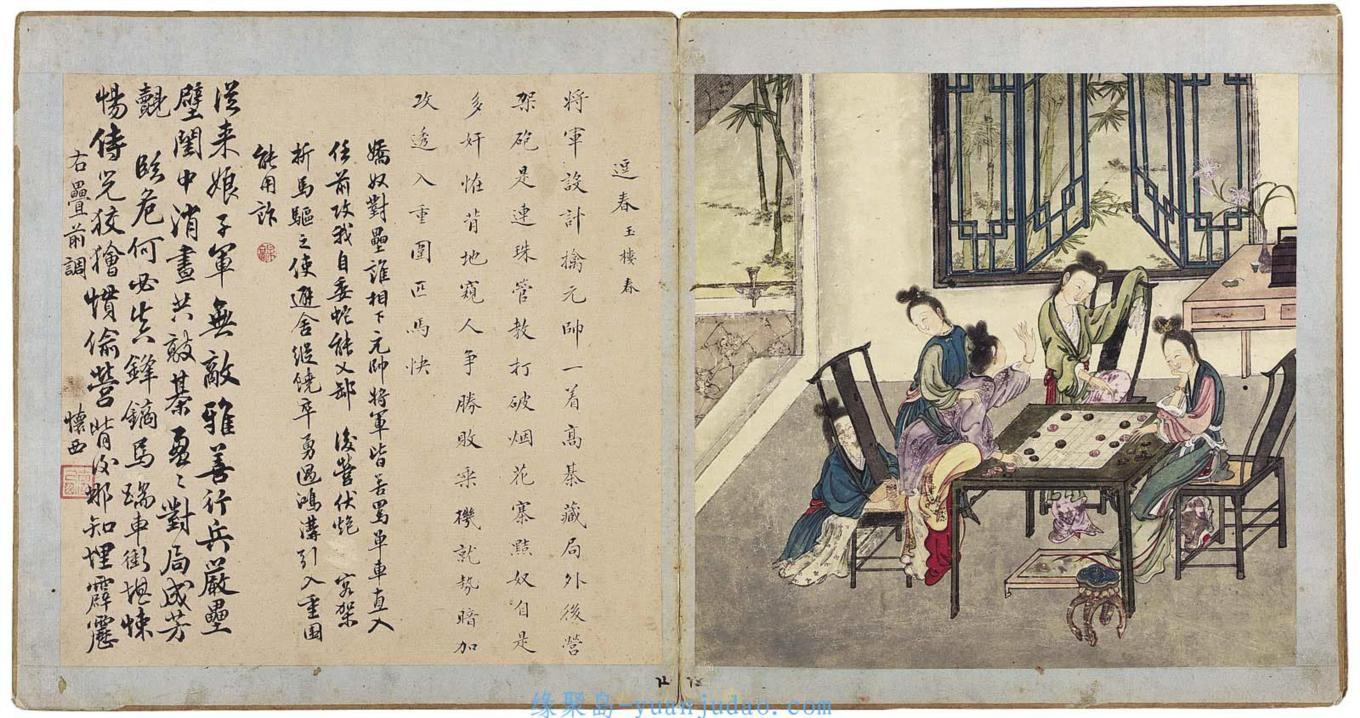 逞春玉樓春
將軍設計擒元帥一着高棊藏局外後營
架砲是連珠管教打破烟花寨黠奴自是
多奸恠背地窺人爭勝敗乘機就勢暗加
攻透入重圍匹馬快
嬌奴對壘誰相下元帥將軍皆善罵單車直入
任前攻我自委蛇能乂却 後營伏炮 容架
折馬驅之使避舍緩饒卒勇過鴻溝引入重圍
能用詐
從来娘子軍無敵雅善行兵嚴壘
壁閨中消晝共敲棊 對局成芳
覿 臨危何必尖鋒鏑馬 車衝堪悚
惕侍兒狡獪慣偷營背後那知埋霹靂
右疊前調 懷西
缘聚岛-yuanjudao.com